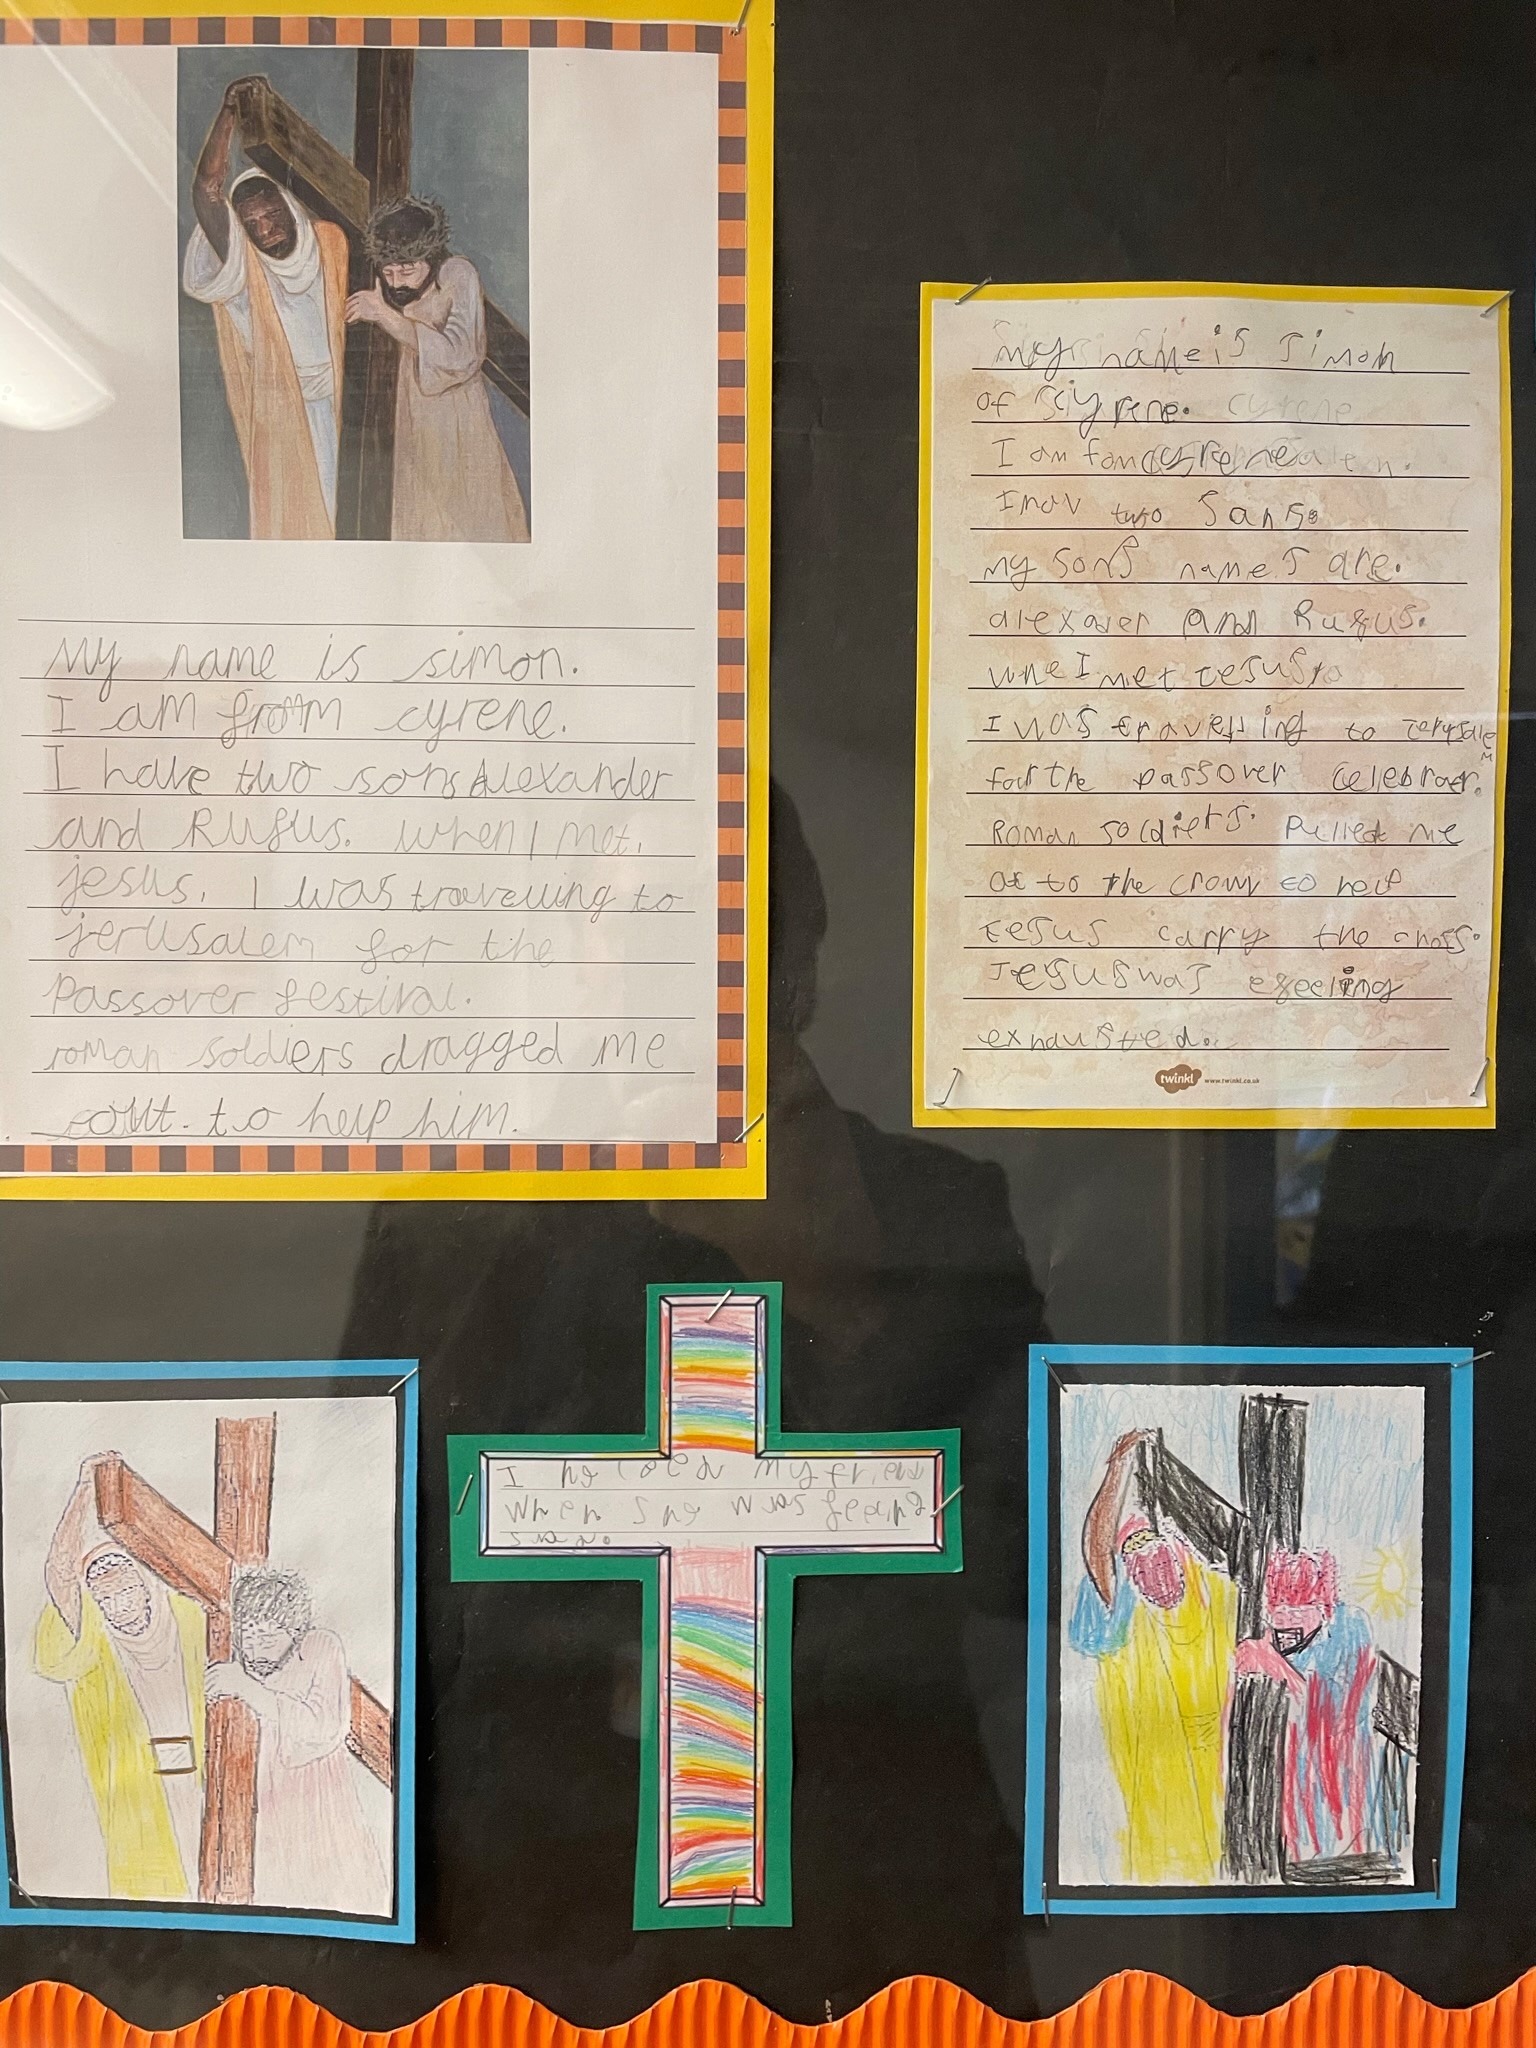 My name is simon.
I am from cyrene.
I have two sons Alexander
and Rufus. when I met.
jesus. I was travelling to
jerusalem for the
Passover festival.
roman soldiers dragged me
out. to help him.
my name is Simon
of Sciyrene. cyrene
I am
I hav two Sans.
my sons names are.
alexaver and Rufus.
whe I met Jesus
I was travelling to Jerusalem
for the passover celebrater.
Roman soldiers. Pulled me
ot to the crowy to help
Jesus carry the cross.
Jesus was efeeling
exhausted.
twinkl www.twinkl.co.uk
I my friend
when she was feeling